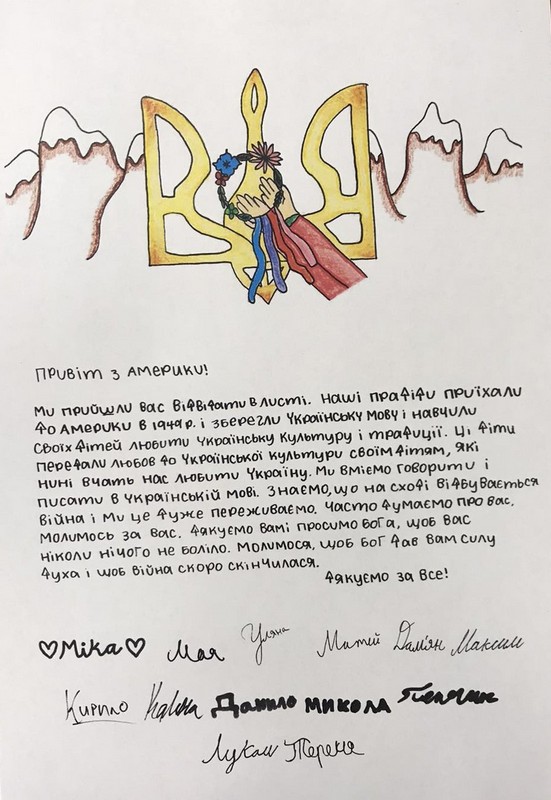 Привіт з Америки!
Ми прийшли вас відвідати в листі. Наші прадіди приїхали
до Америки в 1949 р. і зберегли Українську мову і навчили
своїх дітей любити Українську культуру і традиції. Ці діти
передали любов до Української культури своїм дітям, які
нині вчать нас любити Україну. Ми вміємо говорити і
писати в Українській мові. Знаємо, що на сході відбувається
війна і ми це дуже переживаємо. Часто думаємо про вас.
Молимось за вас. Дякуємо вам і просимо Бога, щоб вас
ніколи нічого не боліло. Молимося, щоб Бог дав вам силу
духа і щоб війна скоро скінчилася.
Дякуємо за все!
♡Міка♡ Мая Уляна Матей Дам'ян Максим
Кирило Калина Данило Микола
Лукаш Тереня